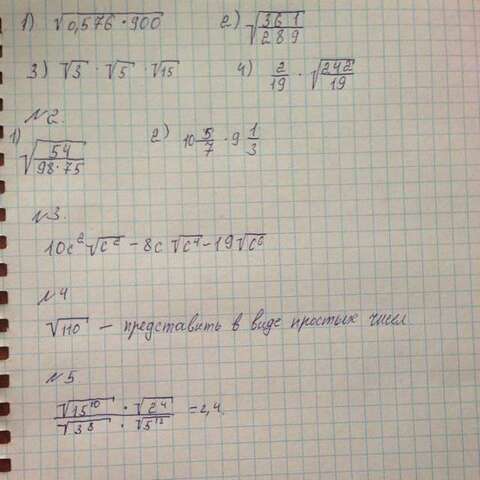 1) √0,576 · 900 2) √361/289
3) √3 · √5 · √15 4) 2/19 · √242/19
№2.
1) √54/98·75 2) 10 5/7 · 9 1/3
№3.
10c²√c² - 8c √c⁴ - 19√c⁶
№4
√110 – представить в виде простых чисел
№5
√15¹⁰ · √2⁴ / √3⁸ · √5¹² = 2,4